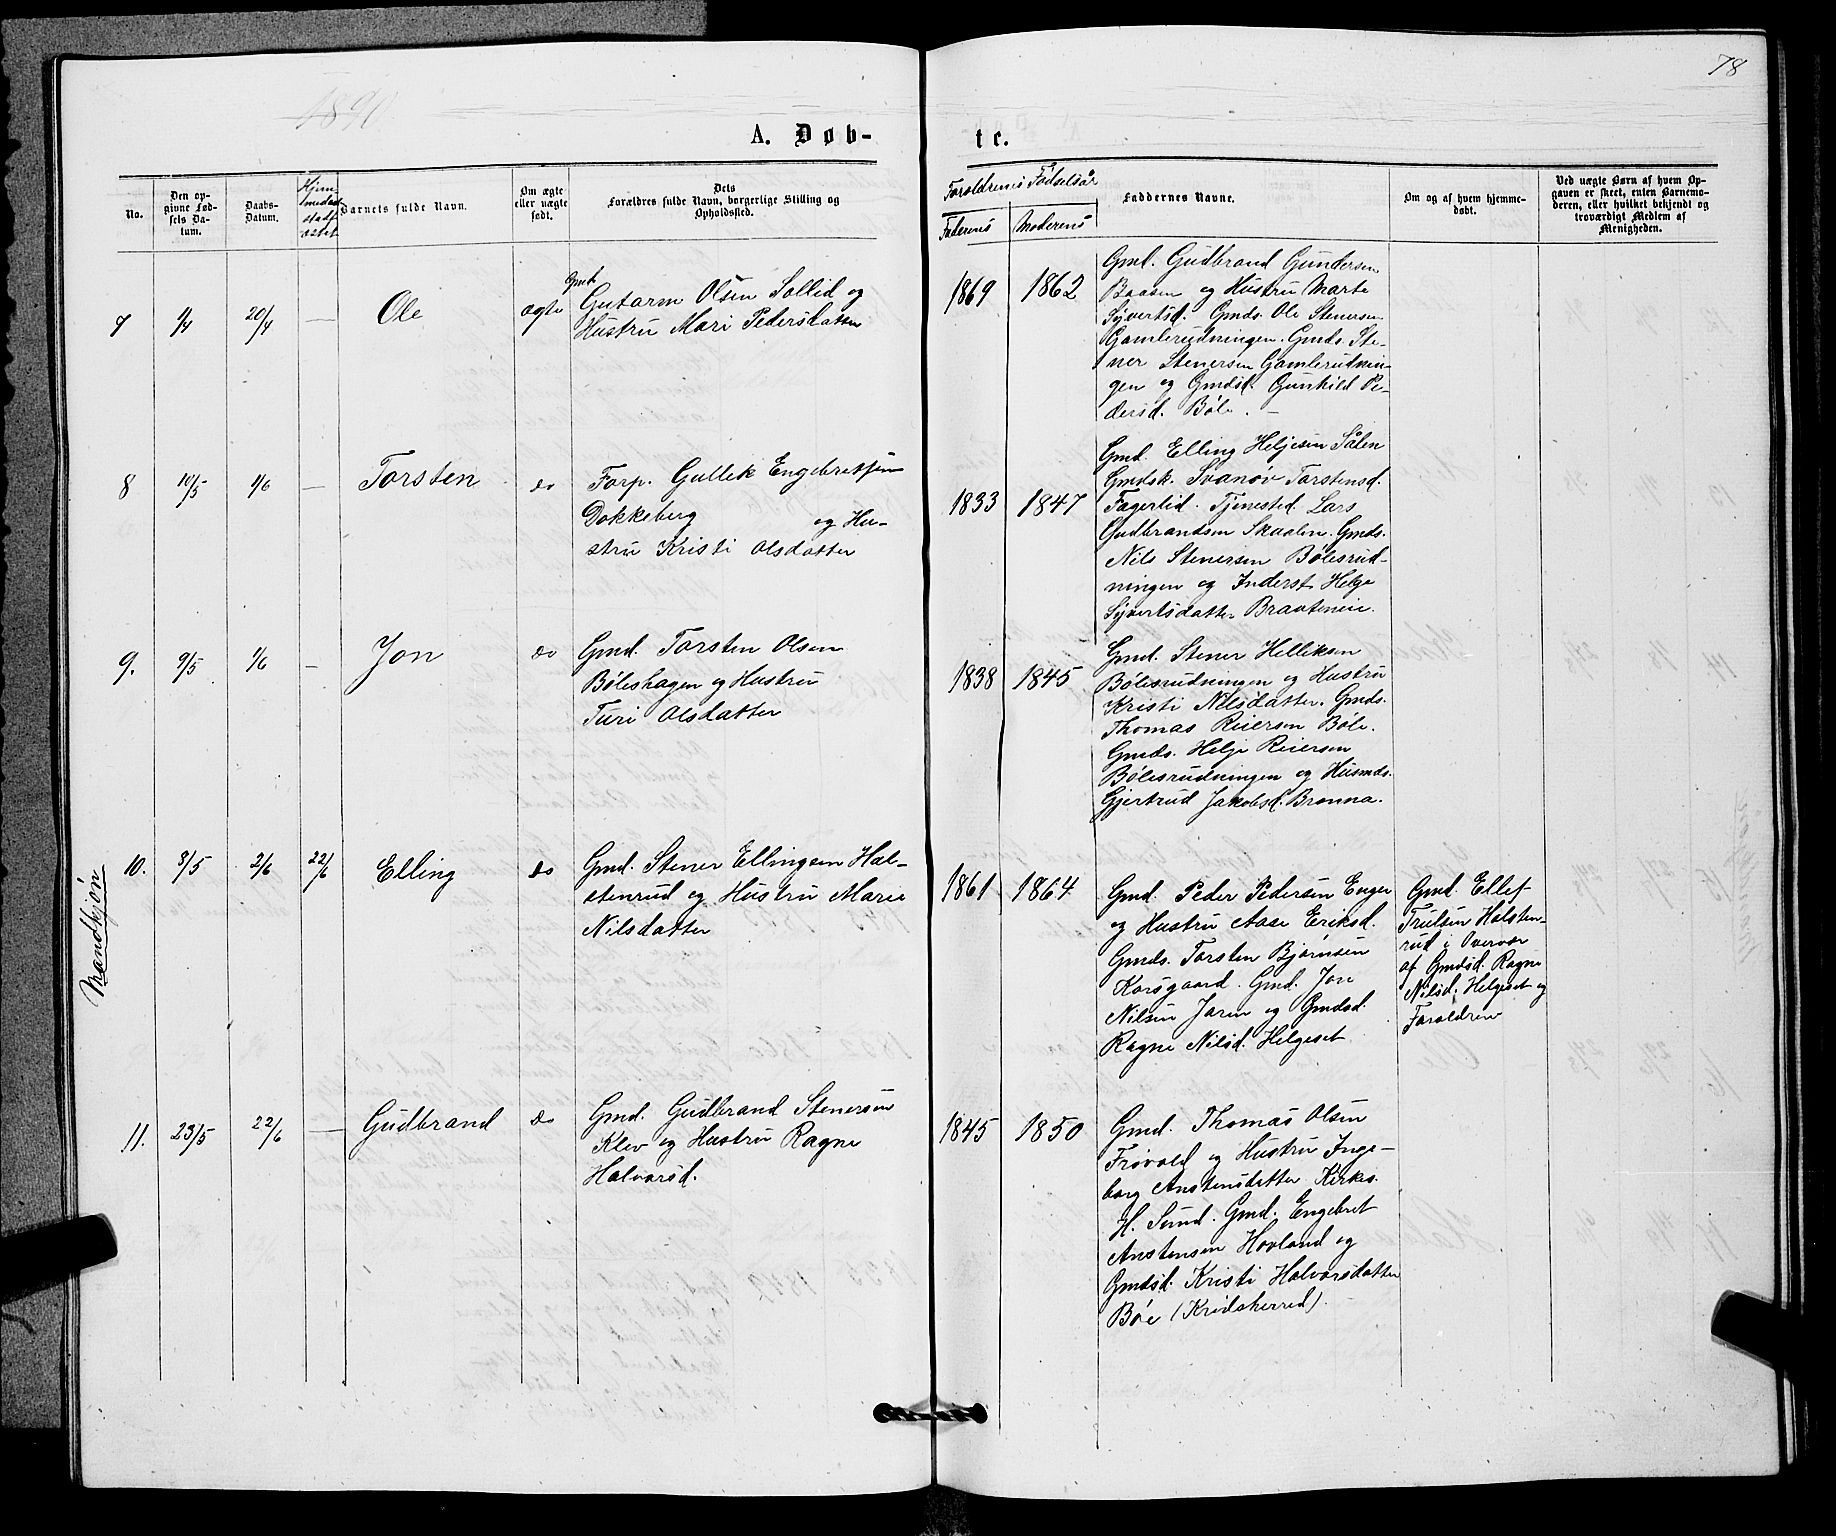 78
1890
A. Døb-
te.
No.
Den op-
givne Fød-
sels Da-
tum.
Daabs-
Datum.
Hjem-
medaab
stadf
æstet
Barnets fulde Navn.
Om ægte
eller uægte
født.
Dets
Forældres fulde Navn, borgerlige Stilling og
Opholdssted.
Foræld­renes Fødselsår
Faderens
Moderens
Faddernes Navne.
Om og af hvem hjemme-
døbt.
Ved uægte Børn af hvem Op-
gaven er skeet, enten Barnemo-
deren, eller hvilket bekjendt og
troværdigt Medlem af
Menigheden.
Mandkjøn
7
1/4
20/4
—
Ole
ægte
Gmd.
Gutorm Olsen Sollid og
Hustru Mari Pedersdatter
1869
1862
Gmd. Gudbrand Gundersen
Baasen og Hustru Marte
Syvertsd. Gmds. Ole Stenersen
Gamlerudningen. Gmds. Ste-
ner Stenersen Gamlerudnin-
gen og Gmdsd. Gunhild Pe-
dersd. Bøle. —
8
10/5
1/6
—
Torsten
do
Forp. Gullik Engebretsen
Dokkeberg og Hu-
stru Kristi Olsdatter
1833
1847
Gmd. Elling Heljesen Sålen
Gmdsk. Svanøv Torstensd.
Fagerlid. Tjenested. Lars
Gudbrandsen Skaalen. Gmds.
Nils Stenersen Bølesrud-
ningen og Inderst Helge
Syvertsdatter Braateneie.
9.
9/5
1/6
—
Jon
do
Gmd. Torsten Olsen
Bøleshagen og Hustru
Turi Olsdatter
1838
1845
Gmd. Stener Helliksen
Bølesrudningen og Hustru
Kristi Nilsdatter. Gmds.
Thomas Reiersen Bøle.
Gmds. Helje Reiersen
Bølesrudningen og Husmds.
Gjertrud Jakobsd. Brenna.
10.
3/5
2/6
22/6
Elling
do
Gmd. Stener Ellingsen Hal-
stenrud og Hustru Marie
Nilsdatter
1861
1864
Gmd. Peder Pedersen Enger
og Hustru Aase Eriksd.
Gmds. Torsten Bjørnsen
Korsgaard. Gmd. Jon
Nilsen Jaren og Gmdsd
Ragne Nilsd. Helgeset
Gmd. Ellef
Trulsen Halsten-
rud i Overvær
af Gmdsd. Ragne
Nilsd. Helgeset og
Forældrene
11.
23/5
22/6
—
Gudbrand
do
Gmd. Gudbrand Stenersen
Klev og Hustru Ragne
Halvorsd.
1845
1850
Gmd. Thomas Olsen
Frøvold og Hustru Inge-
borg Anstensdatter. Kirkes.
H. Sund. Gmd. Engebret
Anstensen Hovland og
Gmdsd. Kristi Halvorsdatter
Bøe (Krødsherred).